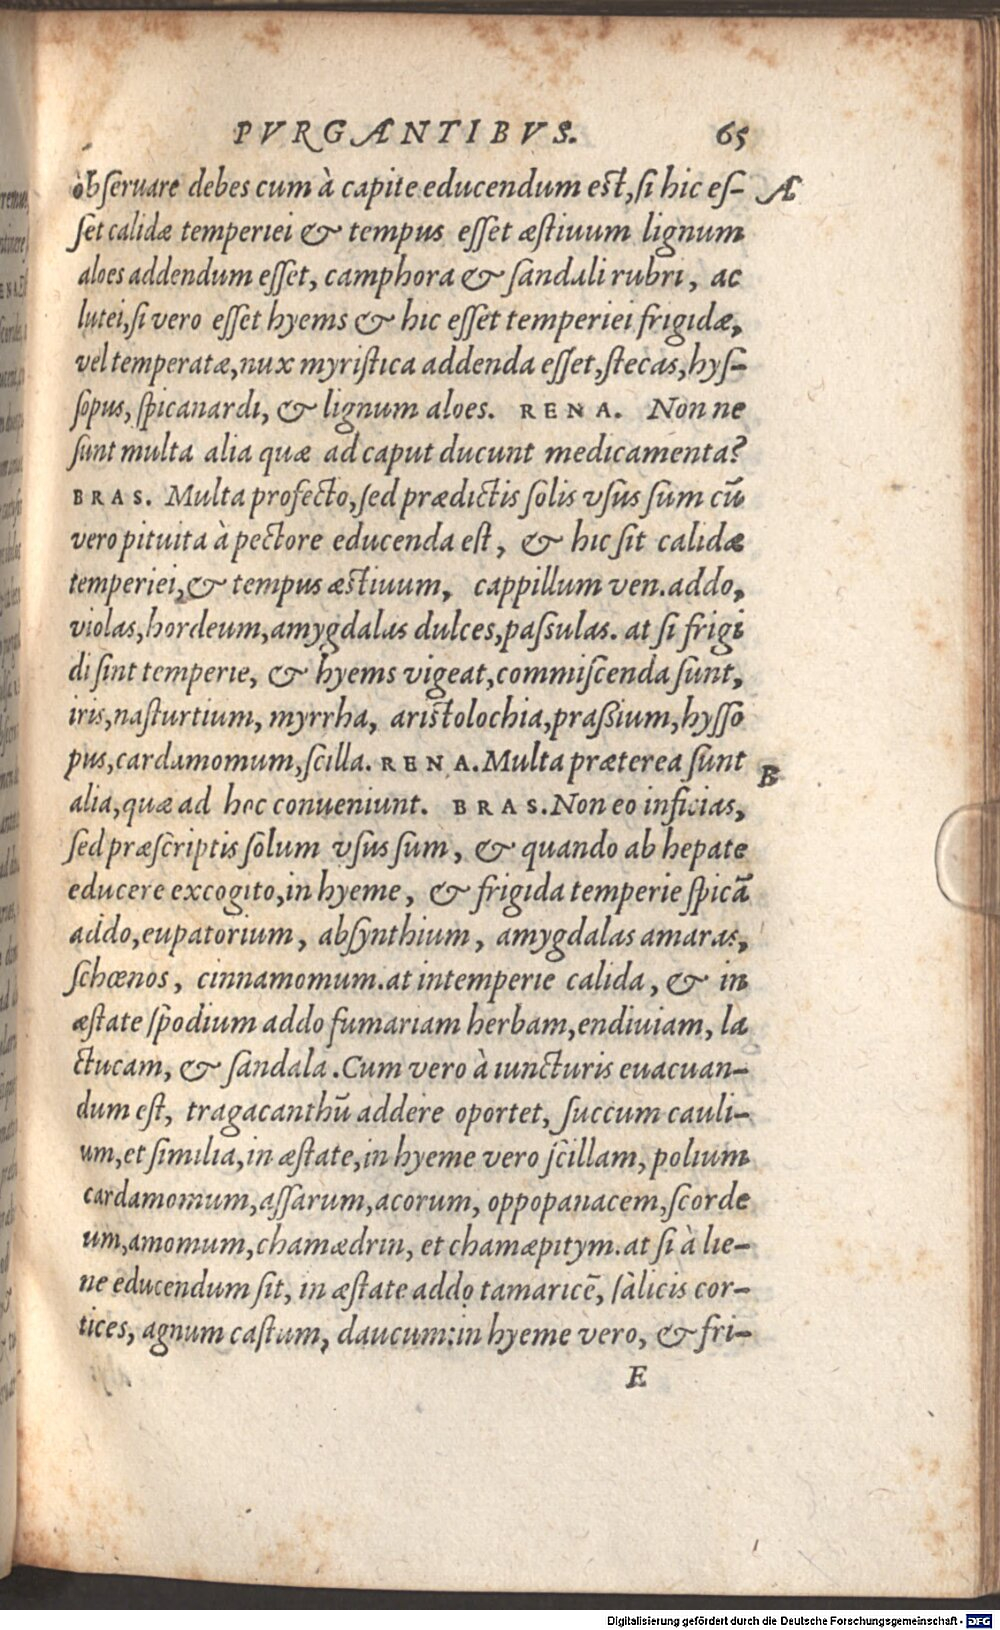 PVRGANTIBVS. 65
obſeruare debes cum à capite educendum est, ſi hic eſ- A
ſet calidæ temperiei & tempus eſſet æſtiuum lignum
aloes addendum eſſet, camphora & ſandali rubri, ac
lutei, ſi vero eſſet hyems & hic eſſet temperiei frigidæ,
vel temperatæ, nux myriſtica addenda eſſet, ſtecas, hyſ-
ſopus, ſpicanardi, & lignum aloes. RENA. Non ne
ſunt multa alia quæ ad caput ducunt medicamenta?
BRAS. Multa profecto, ſed prædictis ſolis vſus ſum cū
vero pituita à pectore educenda eſt, & hic ſit calidæ
temperiei, & tempus æstiuum, cappillum ven. addo,
violas, hordeum, amygdalas dulces, paſsulas. at ſi frigi
di ſint temperie, & hyems vigeat, commiſcenda ſunt,
iris, naſturtium, myrrha, aristolochia, praßium, hyſſo
pus, cardamomum, ſcilla. RENA. Multa præterea ſunt B
alia, quæ ad hoc conueniunt. BRAS. Non eo inficias,
ſed præſcriptis ſolum vſus ſum, & quando ab hepate
educere excogito, in hyeme, & frigida temperie ſpicā
addo, eupatorium, abſynthium, amygdalas amaras,
ſchœnos, cinnamomum. at intemperie calida, & in
æſtate ſpodium addo fumariam herbam, endiuiam, la
ctucam, & ſandala. Cum vero à iuncturis euacuan-
dum eſt, tragacanthū addere oportet, ſuccum cauli-
um, et ſimilia, in æſtate, in hyeme vero ſcillam, polium
cardamomum, aſſarum, acorum, oppopanacem, ſcorde
um, amomum, chamædrin, et chamæpitym. at ſi à lie-
ne educendum ſit, in æſtate addo tamaricē, ſàlicis cor-
tices, agnum caſtum, daucum: in hyeme vero, & fri-
E
Digitalisierung gefördert durch die Deutsche Forschungsgemeinschaft - DFG